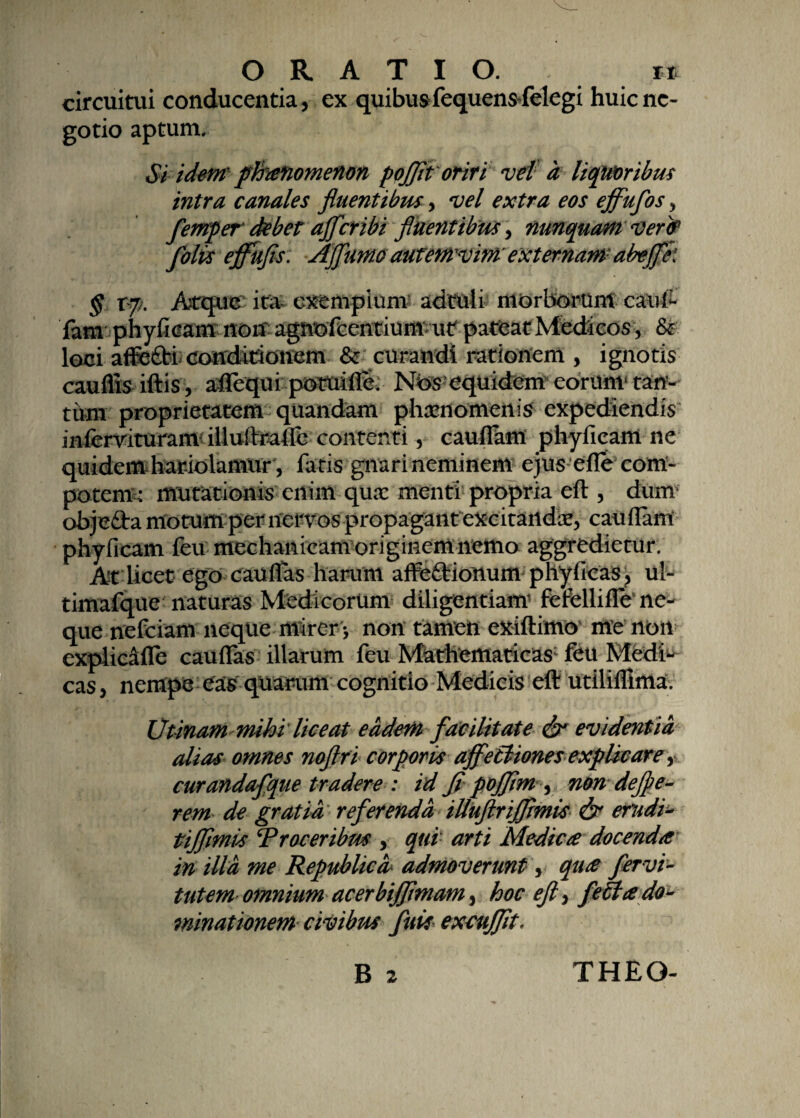 ORATIO. 11
circuitui conducentia, ex quibus ſequens ſelegi huic ne-
gotio aptum.
Si idem phænomenon poſſit oriri vel à liquoribus
intra canales fluentibus, vel extra eos effuſos,
ſemper debet aſſcribi fluentibus, nunquam verò
ſolis effuſis. Aſſumo autem vim externam abeſſe.
§ 17. Atque ita exemplum adtuli morborum cauſ-
ſam phyſicam non agnoſcentium ut pateat Medicos, &
loci affecti conditionem & curandi rationem , ignotis
cauſſis iſtis, aſſequi potuiſſe. Nos equidem eorum tan-
tùm proprietatem quandam phænomenis expediendis
inſervituram illuſtraſſe contenti, cauſſam phyſicam ne
quidem hariolamur, ſatis gnari neminem ejus eſſe com-
potem: mutationis enim quæ menti propria eſt , dum
objecta motum per nervos propagant excitandæ, cauſſam
phyſicam ſeu mechanicam originem nemo aggredietur.
At licet ego cauſſas harum affectionum phyſicas, ul-
timaſque naturas Medicorum diligentiam fefelliſſe ne-
que neſciam neque mirer; non tamen exiſtimo me non
explicâſſe cauſſas illarum ſeu Mathematicas ſeu Medi-
cas, nempe eas quarum cognitio Medicis eſt utiliſſima.
Utinam mihi liceat eâdem facilitate & evidentiâ
alias omnes noſtri corporis affectiones explicare,
curandaſque tradere : id ſi poſſim , non deſpe-
rem de gratiâ referendâ illuſtriſſimis & erudi-
tiſſimis Proceribus , qui arti Medicæ docendæ
in illâ me Republicâ admoverunt, quæ ſervi-
tutem omnium acerbiſſimam, hoc eſt, ſectæ do-
minationem civibus ſuis excuſſit.
B 2 THEO-